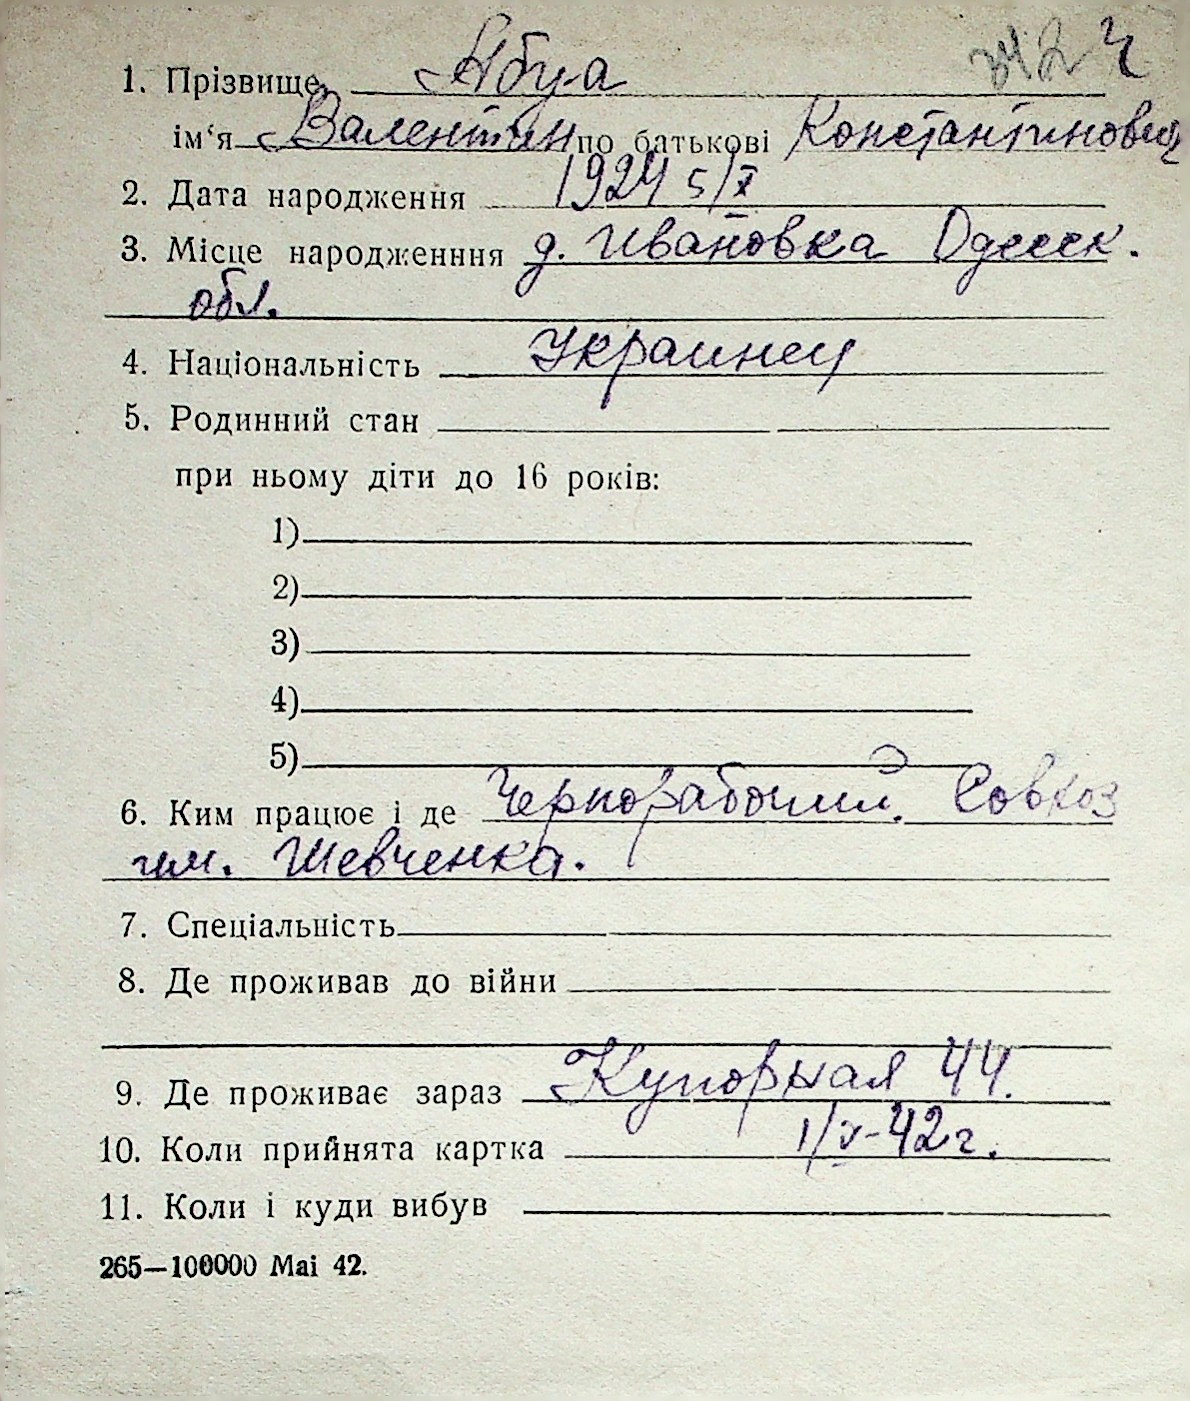 342 Ч
1. Прізвище Абуа
ім‘я Валентин по батькові Константинович
2. Дата народження 1924 5/X
3. Місце народженння д. Ивановка Одесск.
обл.
4. Національність Украинец
5. Родинний стан
при ньому діти до 16 років:
1)
2)
3)
4)
5)
6. Ким працює і де Чернорабочий. Совхоз
им. Шевченка.
7. Спеціальність
8. Де проживав до війни
9. Де проживає зараз Купорная 44.
10. Коли прийнята картка 1/V-42г.
11. Коли і куди вибув
265—100000 Mai 42.